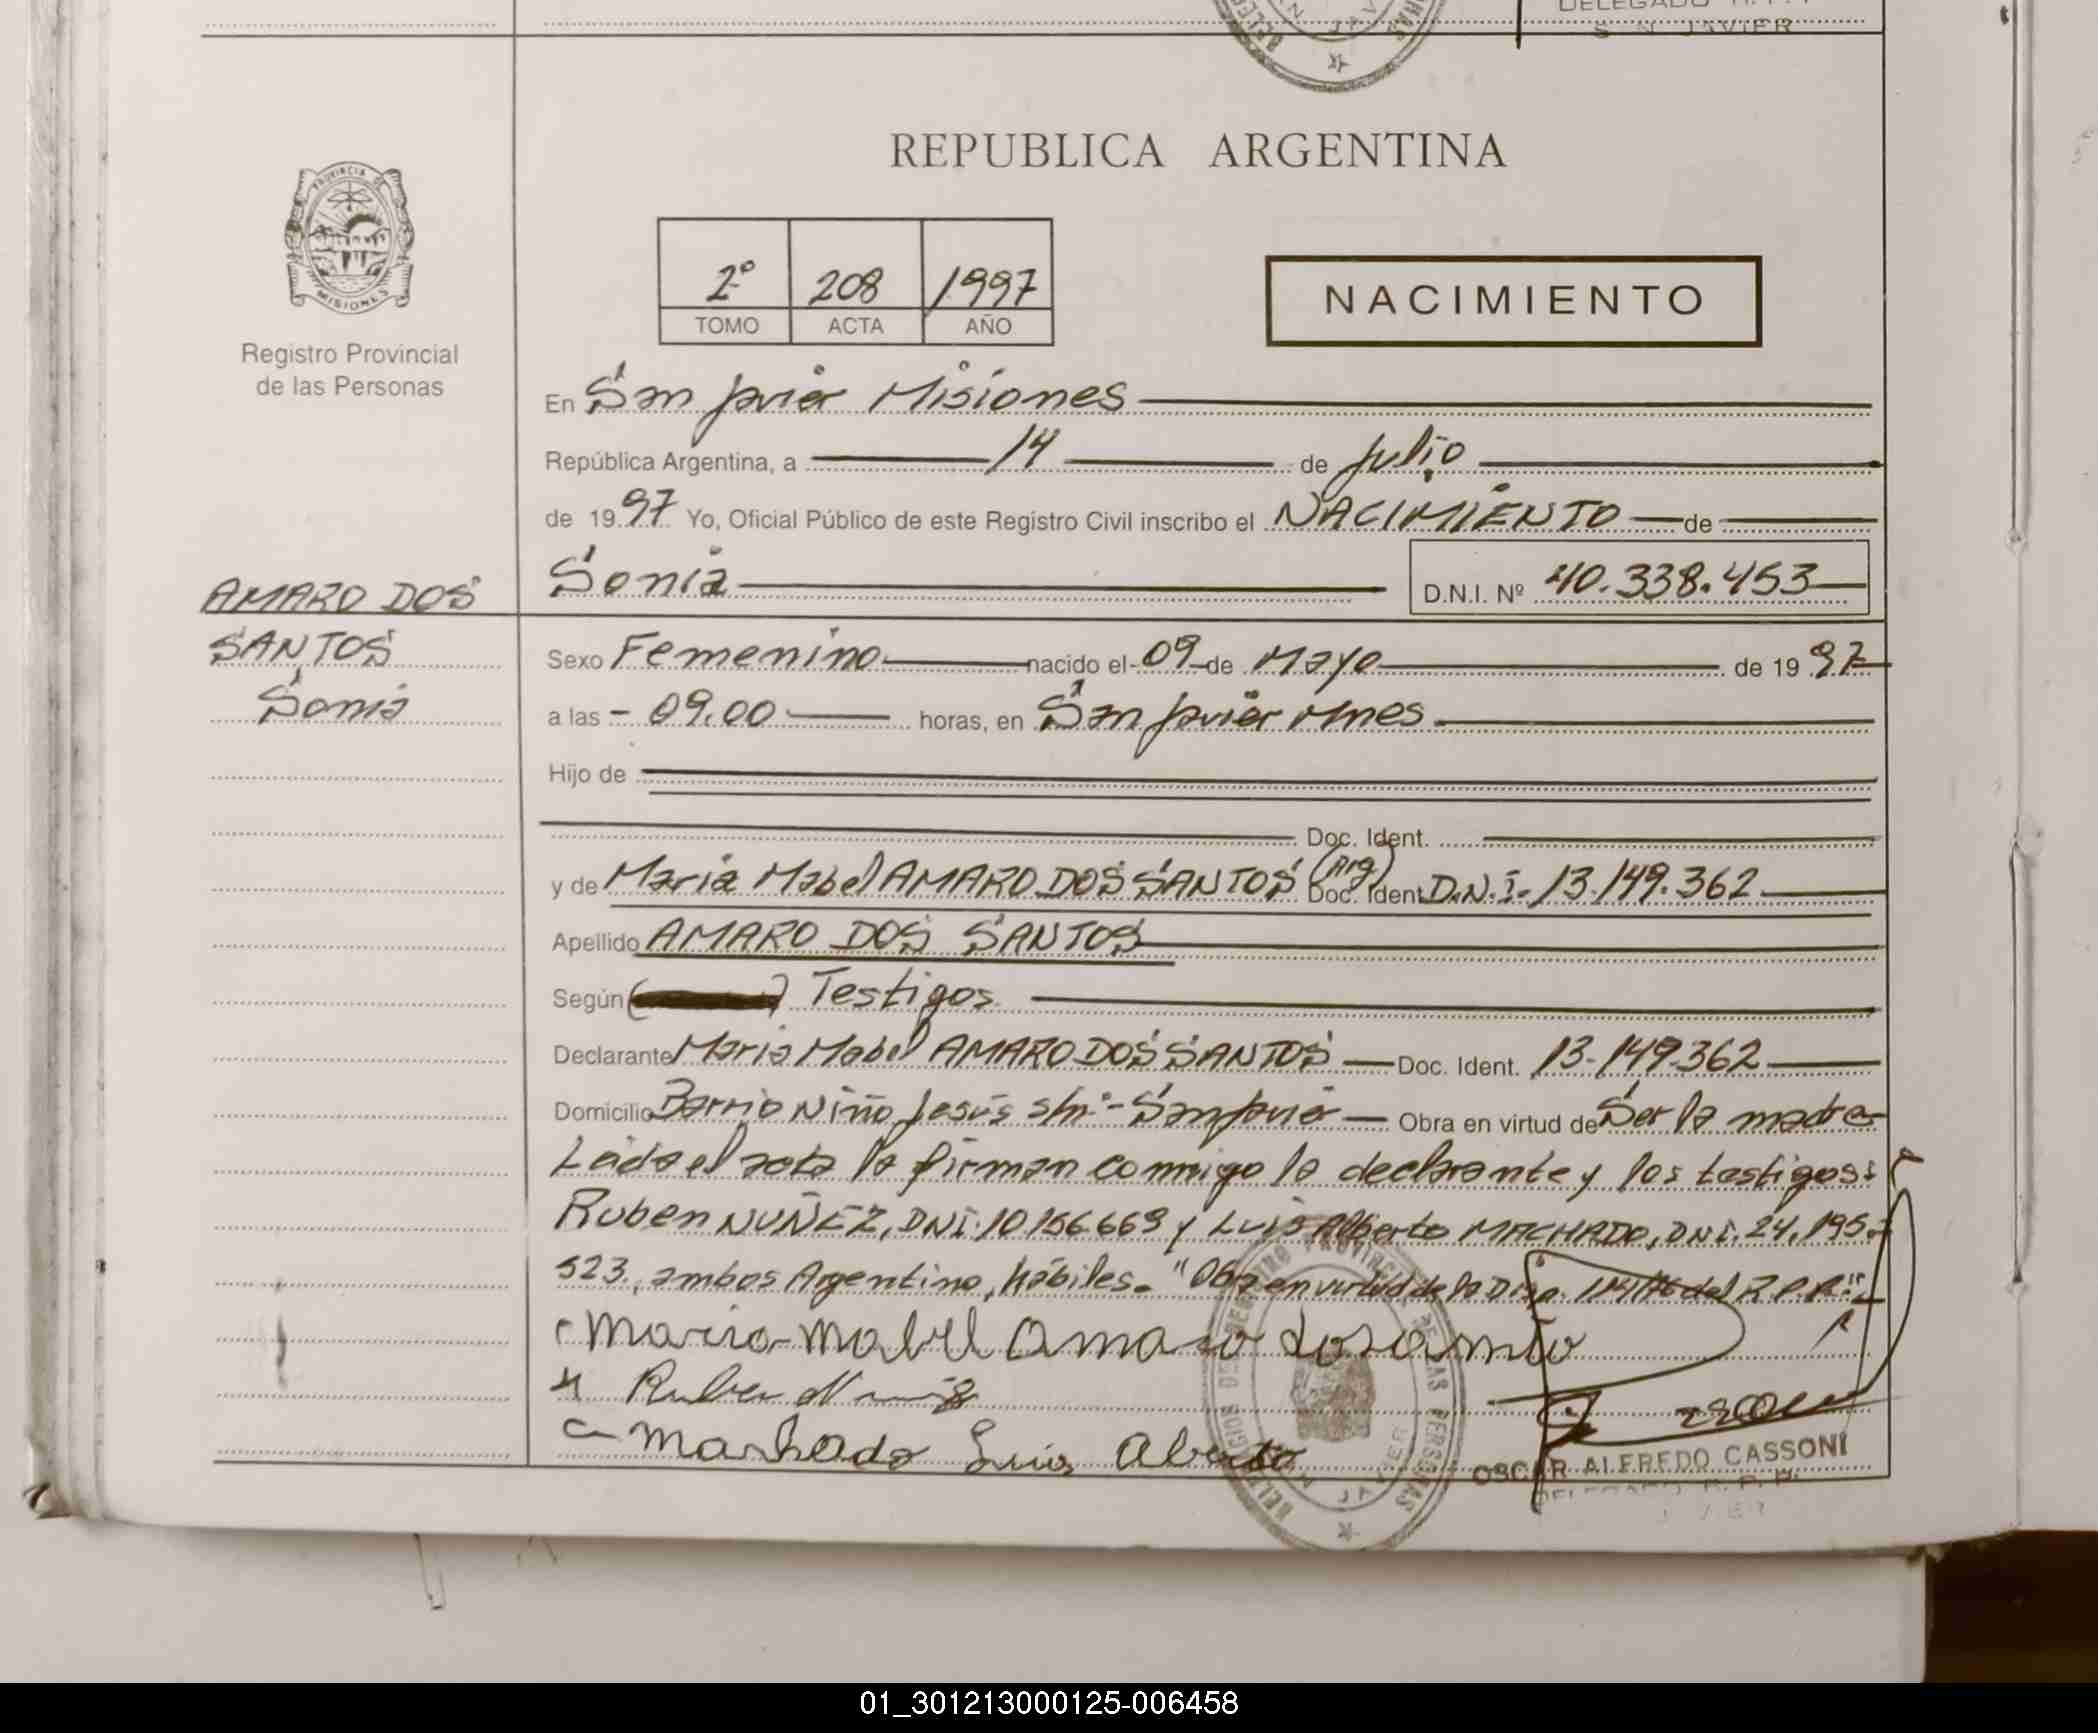 DELEGADO R.P.P.
SAN JAVIER
REPUBLICA ARGENTINA
PROVINCIA DE MISIONES
Registro Provincial
de las Personas
2º 208 1997
TOMO ACTA AÑO
NACIMIENTO
En San Javier Misiones
República Argentina, a 14 de Julio
de 1997 Yo, Oficial Público de este Registro Civil inscribo el NACIMIENTO de
Sonia D.N.I. Nº 40.338.453
AMARO DOS
SANTOS
Sonia
Sexo Femenino nacido el 09 de Mayo de 1997
a las - 09.00 horas, en San Javier Mnes
Hijo de
Doc. Ident.
y de Maria Mabel AMARO DOS SANTOS (Arg) Doc. Ident D.N.I. 13.149.362
Apellido AMARO DOS SANTOS
Según ( ) Testigos
Declarante Maria Mabel AMARO DOS SANTOS Doc. Ident. 13.149.362
Domicilio Barrio Niño Jesús s/nº - San Javier Obra en virtud de Ser la madre
Leida el acta la firman conmigo la declarante y los testigos:
Ruben NUÑEZ, DNI. 10.156.669 y Luis Alberto MACHADO, DNI. 24.195.
523, ambos Argentino, hábiles. "Obra en virtud de la Disp. del R.P.P."
Maria Mabel Amaro dos santo
Ruben Nuñez
Machado Luis Alberto
REGISTRO PROVINCIAL DE LAS PERSONAS
SAN JAVIER
OSCAR ALFREDO CASSONI
DELEGADO R. P. P.
01_301213000125-006458